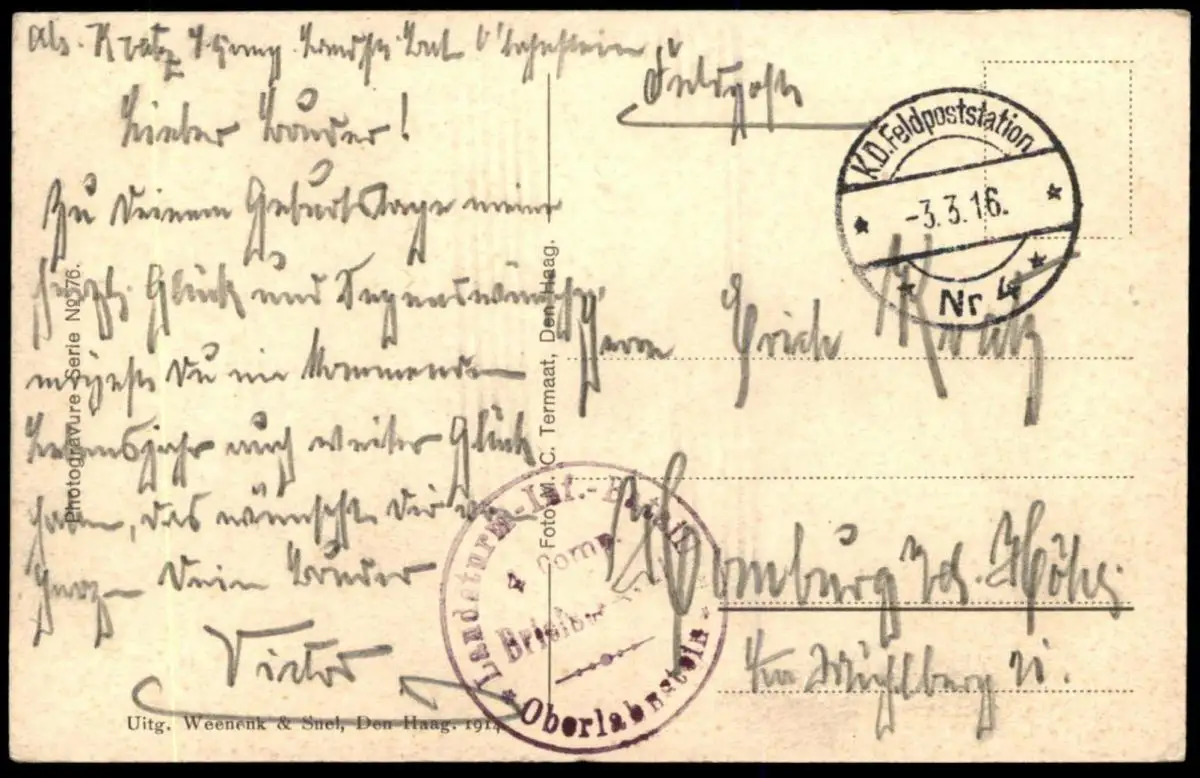 Abs. Kratz 4 Comp. Landst. Bat. O'Lahnstein
Feldpost
Lieber Bruder!
Zu Deinem Geburtstage meine
herzl. Glück und Segenswünsche
mögest Du im kommenden
Lebensjahr auch weiter Glück
haben, das wünscht Dir von
Herzen Dein Bruder
Victor
K.D. Feldpoststation
-3.3.16.
Nr. 4
Herrn Erich Kratz
Homburg v.d. Höhe
Am Mühlberg
Landsturm-Inf.-Bataill.
4 Comp.
Oberlahnstein
Photogravure Serie No. 76.
Foto M. C. Termaat, Den Haag.
Uitg. Weenenk & Snel, Den Haag. 1914